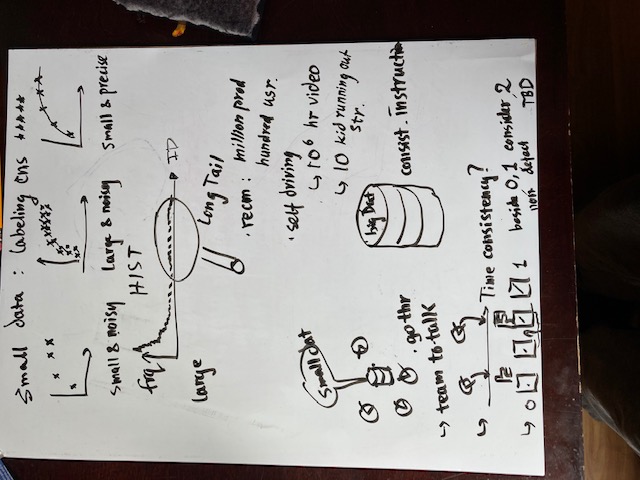 Small data : Labeling cns *****
Small & noisy
Large & noisy
Small & precise
HIST
frq
ID
Large
Long Tail
· recm : million prod
hundred usr.
· self driving
↳ 10⁶ hr video
↳ 10 kid running out
str.
Small dat
big Dat
consist. instruction
· go thr
↳ team to talk
↳ Time consistency?
↳ 0 1 beside 0, 1 consider 2
detect TBD